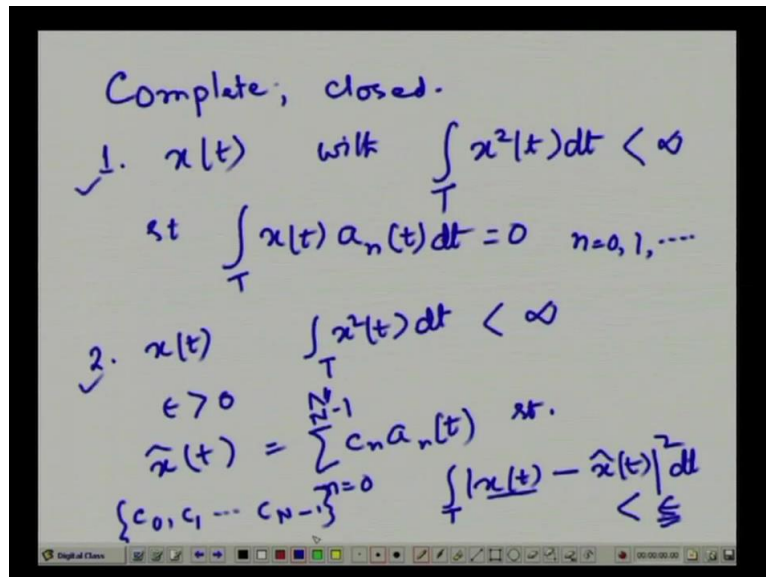 Complete, closed.
1. x(t) with ∫_T x²(t)dt < ∞
st ∫_T x(t) a_n(t) dt = 0 n=0, 1, ....
2. x(t) ∫_T x²(t)dt < ∞
ϵ > 0
x̂(t) = ∑_{n=0}^{N-1} c_n a_n(t) st.
{c_0, c_1 ... c_{N-1}} ∫_T |x(t) - x̂(t)|² dt
< ϵ
Digital Class 00:00:00.00